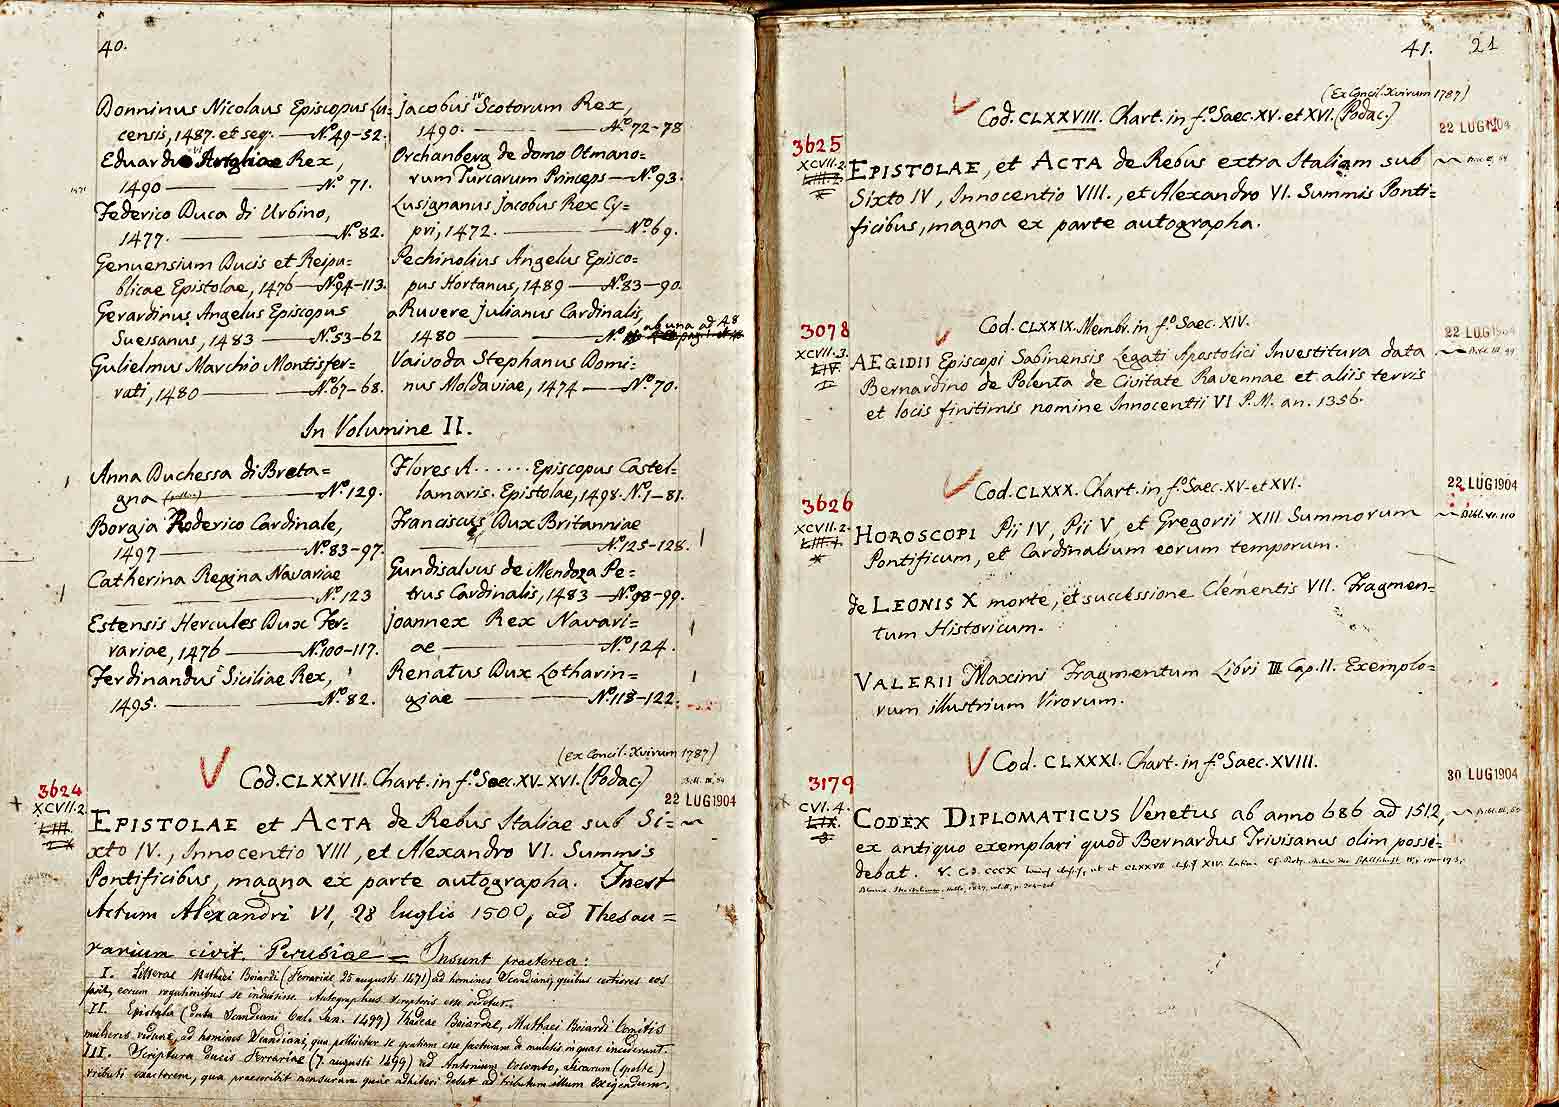 40.
Donninus Nicolaus Episcopus Lu=
censis, 1487. et seq. — No. 49-52.
Eduardo VI Angliae Rex,
1490 — No. 71.
Federico Duca di Urbino,
1477. — No. 82.
Genuensium Ducis et Reipu=
blicae Epistolae, 1476 — No. 94-113.
Gerardinus Angelus Episcopus
Suessanus, 1483 — No. 53-62
Gulielmus Marchio Montisfer=
rati, 1480 — No. 67-68.
Jacobus IV Scotorum Rex,
1490. — No. 72-78
Orchanberg de domo Otmano=
rum Turcarum Princeps — No. 93.
Lusignanus Jacobus Rex Cy=
pri, 1472. — No. 69.
Pechinolius Angelus Episco=
pus Hortanus, 1489 — No. 83-90.
a Ruvere Julianus Cardinalis,
1480 — No. ab una ad 48
Vaivoda Stephanus Domi=
nus Moldaviae, 1474 — No. 70.
In Volumine II.
Anna Duchessa di Breta=
gna — No. 129.
Borgia Roderico Cardinale,
1497 — No. 83-97.
Catherina Regina Navariae
— No. 123
Estensis Hercules Dux Fer=
rariae, 1476 — No. 100-117.
Ferdinandus Siciliae Rex,
1495. — No. 82.
Flores A...... Episcopus Castel=
lamaris. Epistolae, 1498. No. 1-81.
Franciscus Dux Britanniae
— No. 125-128.
Gundisalvus de Mendoza Pe=
trus Cardinalis, 1483 — No. 98-99.
Joannex Rex Navari=
ae — No. 124.
Renatus Dux Lotharin=
giae — No. 118-122.
(Ex Concil. Xvirum 1787)
Cod. CLXXVII. Chart. in fo. Saec. XV-XVI. (Podac.)
3624
XCVII.2.
LIII.
22 LUG 1904
EPISTOLAE et ACTA de Rebus Italiae sub Si=
xto IV., Innocentio VIII, et Alexandro VI. Summis
Pontificibus, magna ex parte autographa. Inest
Actum Alexandri VI, 28 luglio 1500, ad Thesau=
rarium civit. Perusiae = Insunt praeterea:
I. Litterae Mathaei Boiardi (Ferrariae 25 augusti 1471) ad homines Scandiani, quibus certiores eos
facit, eorum rogationibus se indulsisse. Autographus scriptoris esse videtur.
II. Epistola (data Scandiani Cal. Jan. 1499) Thadeae Boiardae, Mathaei Boiardi Comitis
mulieris viduae, ad homines Scandiani, qua pollicetur se gratiam esse facturam de multis in quas inciderant.
III. Scriptura ducis Ferrariae (7 augusti 1499) ad Antonium Colombo, alicarum (spelte)
tributi exactorem, qua praescribit mensuram quae adhiberi debet ad tributum illum exigendum.
41. 21
(Ex Concil. Xvirum 1787)
Cod. CLXXVIII. Chart. in fo. Saec. XV. et XVI. (Podac.)
22 LUG 1904
3625
XCVII.2.
EPISTOLAE, et ACTA de Rebus extra Italiam sub
Sixto IV, Innocentio VIII., et Alexandro VI. Summis Ponti=
ficibus, magna ex parte autographa.
Cod. CLXXIX. Membr. in fo. Saec. XIV.
22 LUG 1904
3078
XCVII.3.
LIV.
I
AEGIDII Episcopi Sabinensis Legati Apostolici Investitura data
Bernardino de Polenta de Civitate Ravennae et aliis terris
et locis finitimis nomine Innocentii VI P.M. an. 1356.
Cod. CLXXX. Chart. in fo. Saec. XV. et XVI.
22 LUG 1904
3626
XCVII.2.
LIII.1.
HOROSCOPI Pii IV, Pii V, et Gregorii XIII Summorum
Pontificum, et Cardinalium eorum temporum.
de LEONIS X morte, et successione Clementis VII. Fragmen=
tum Historicum.
VALERII Maximi Fragmentum Libri III Cap. II. Exemplo=
rum illustrium Virorum.
Cod. CLXXXI. Chart. in fo. Saec. XVIII.
30 LUG 1904
3179
CVI.4.
LIX.
8
CODEX DIPLOMATICUS Venetus ab anno 686 ad 1512,
ex antiquo exemplari quod Bernardus Trivisanus olim possi=
debat.